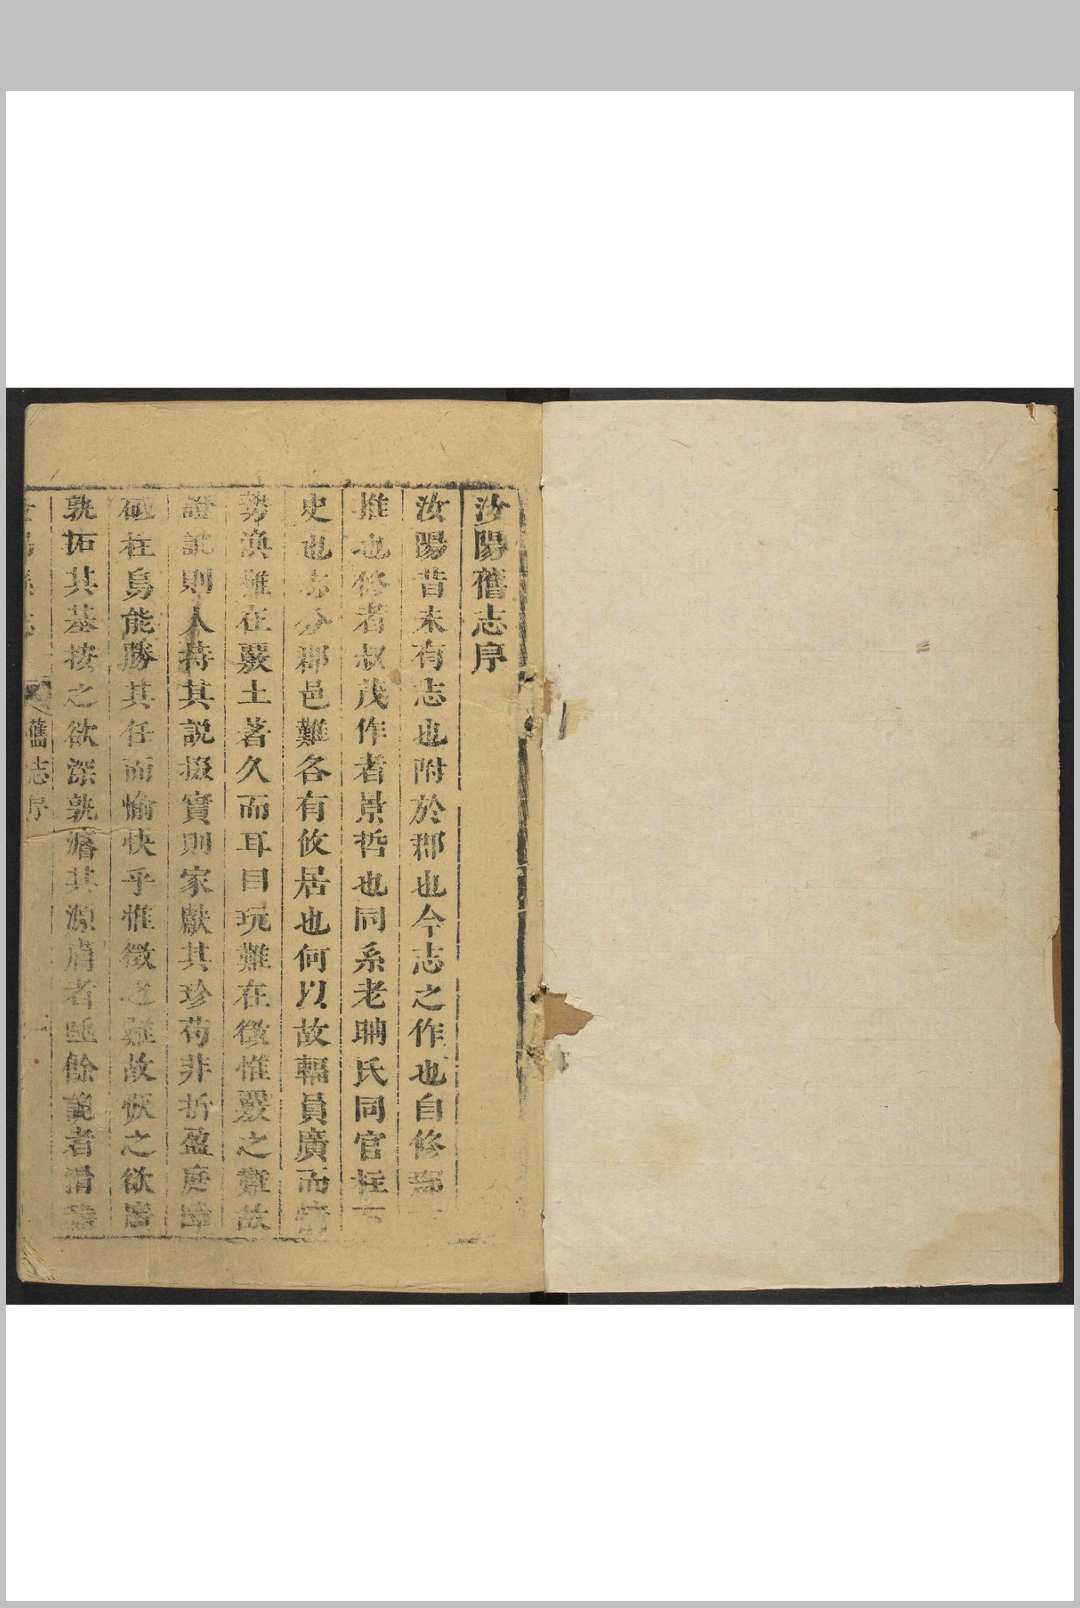 汝陽舊志序
汝陽昔未有志也附於郡也今志之作也自修
推也修者叔茂作者景哲也同系老聃氏同官柱下
史也志分郡邑難各有攸居也何以故輻員廣而
勢渙難在覈土著久而耳目玩難在徵惟覈之難故
證訛則人持其說掇實則家獻其珍苟非折盈庭
砥柱烏能勝其任而愉快乎惟徵之難故厭之欲
孰拓其基按之欲深孰濬其源膚者唾餘詭者
舊志序